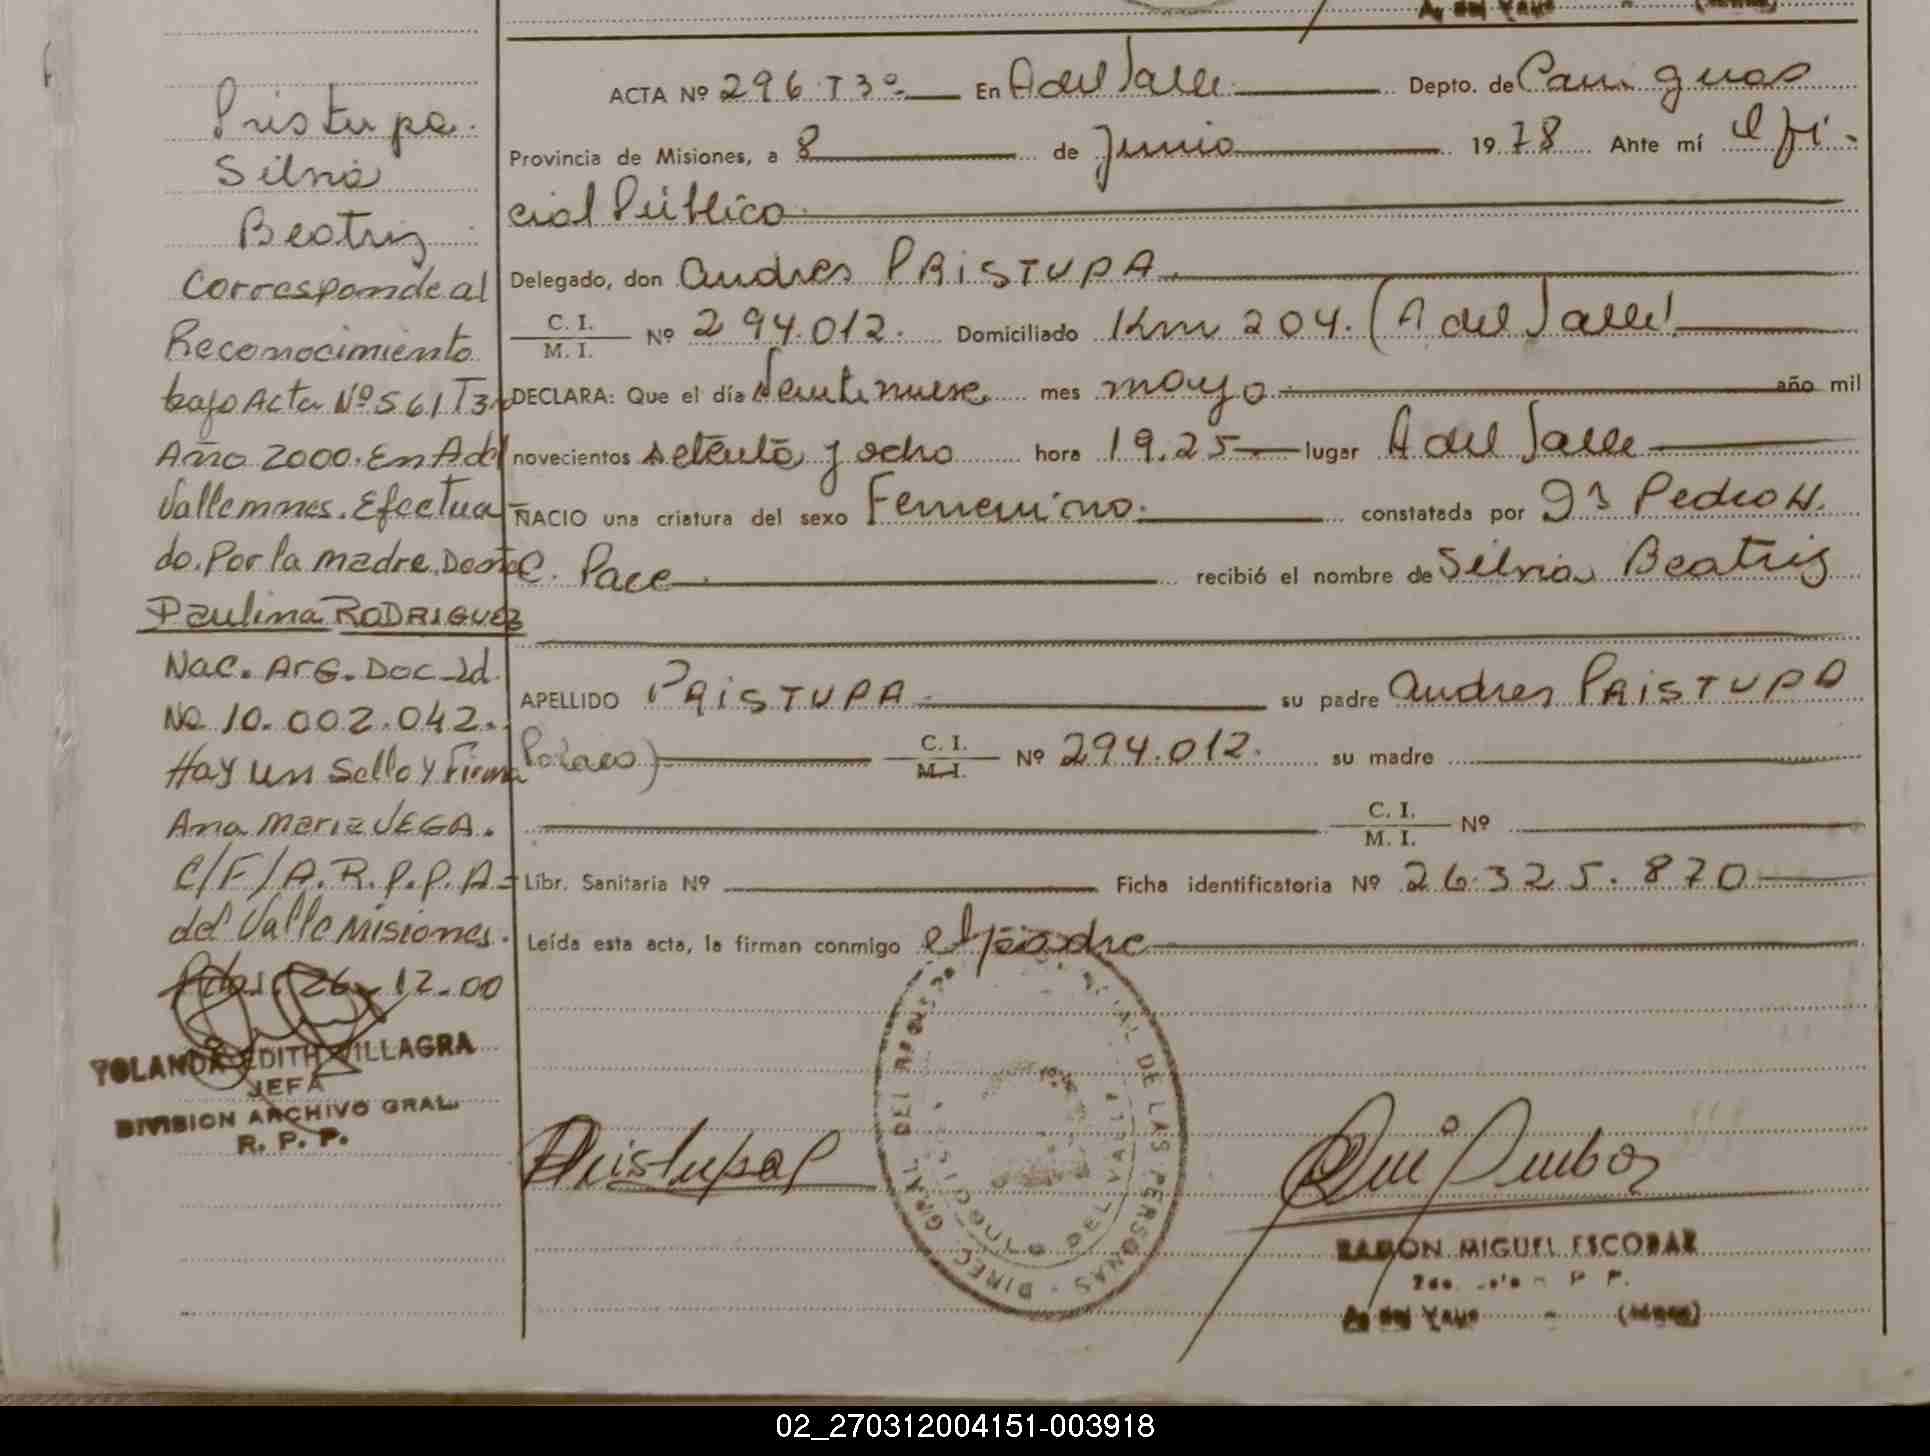 Pristupa
Silvia
Beatriz
Corresponde al
Reconocimiento
bajo Acta Nº 561 T3º
Año 2000. En A del
Valle mnes. Efectua
do. Por la madre. Doña
Paulina RODRIGUEZ
Nac. Arg. Doc. Id.
Nº 10.002.042.
Hay un Sello y Firma
Ana Maria VEGA.
C/F/A.R.P.P.A-
del Valle Misiones.
Pdas. 26-12-00
YOLANDA EDITH VILLAGRA
JEFA
DIVISION ARCHIVO GRAL.
R. P. P.
ACTA Nº 296 T3º En A del Valle Depto. de Cainguas
Provincia de Misiones, a 8 de Junio 1978 Ante mí Ofi-
cial Público
Delegado, don Andres PRISTUPA
C. I. / M. I. Nº 294.012. Domiciliado Km 204. (A del Valle)
DECLARA: Que el día Veintinueve mes mayo año mil
novecientos setenta y ocho hora 19.25 lugar A del Valle
NACIO una criatura del sexo Femenino. constatada por Dr Pedro H.
C. Pace recibió el nombre de Silvia Beatriz
APELLIDO PRISTUPA su padre Andres PRISTUPA
Polaco) C. I. / M. I. Nº 294.012. su madre
C. I. / M. I. Nº
Libr. Sanitaria Nº Ficha identificatoria Nº 26.325.870
Leída esta acta, la firman conmigo el padre
DIREC. GRAL. DEL REGISTRO DE LAS PERSONAS
DEL VALLE
Pristupa
RAMON MIGUEL ESCOBAR
A. del Valle (Mnes)
02_270312004151-003918